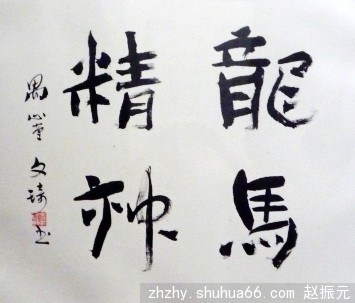 龍馬
精神
文琦
zhzhy.shuhua66.com 赵振元